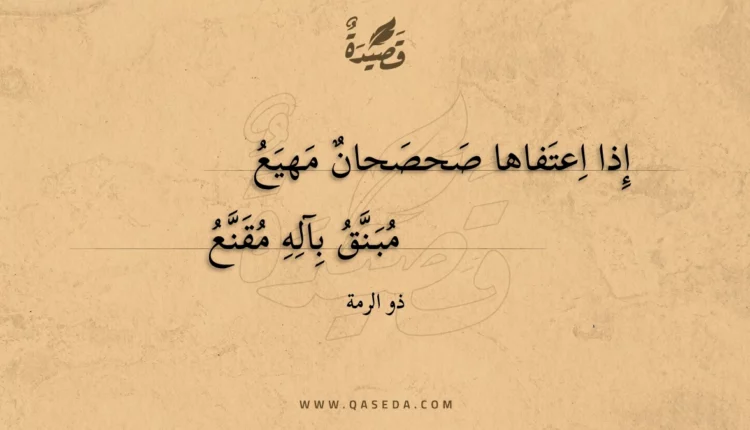 قَصِيْدَةٌ
إِذا اِعتَفاها صَحصَحانٌ مَهيَعُ
مُبَنَّقُ بِآلِهِ مُقَنَّعُ
ذو الرمة
WWW.QASEDA.COM